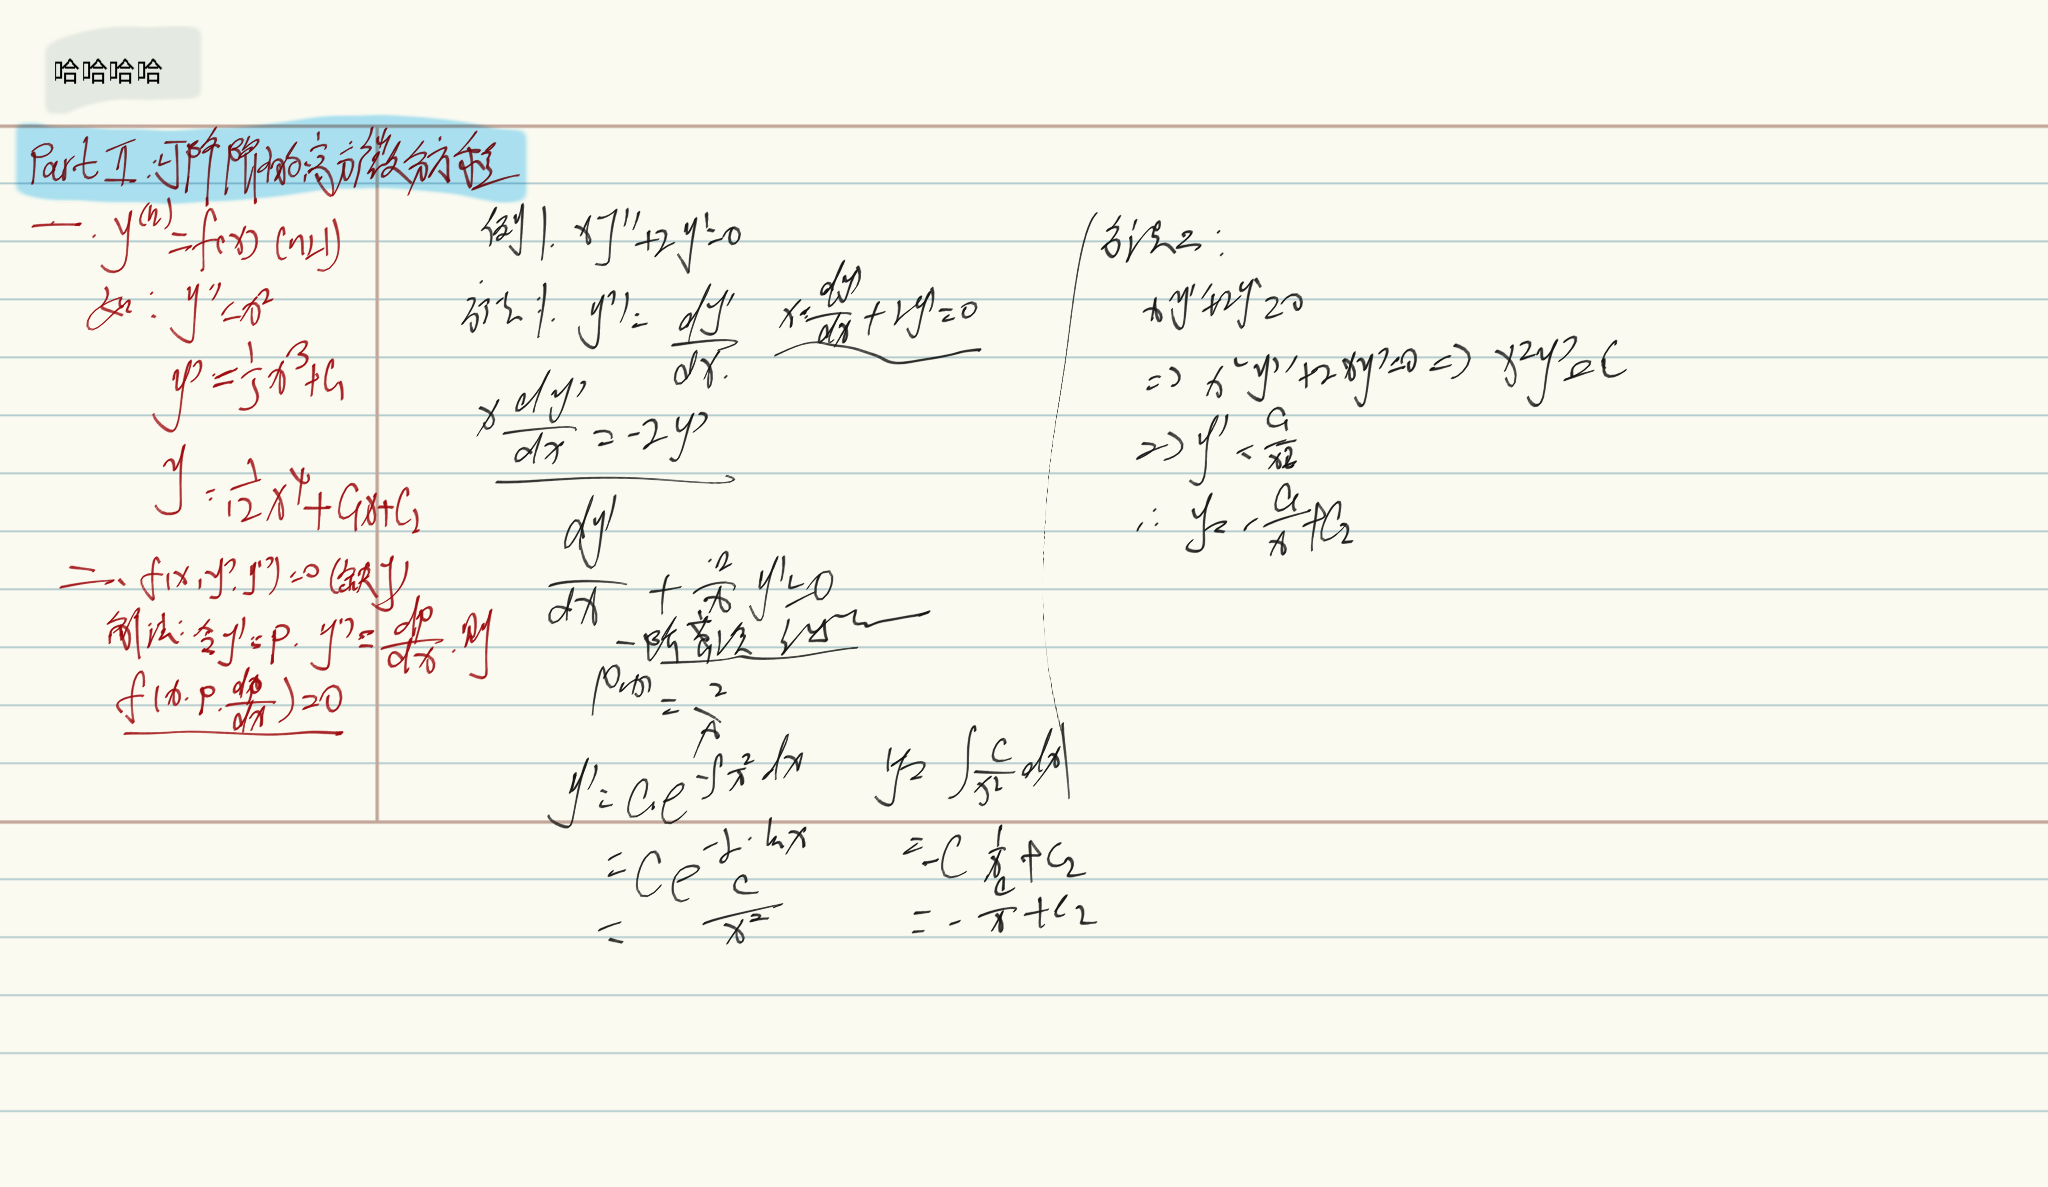 哈哈哈哈
Part Ⅱ:可降阶的高阶微分方程
一. y⁽ⁿ⁾=f(x) (n≥1)
如: y''=x²
y'=1/3 x³+C₁
y=1/12 x⁴+C₁x+C₂
二、f(x,y',y'')=0 (缺y)
解法:令y'=p. y''=dp/dx.则
f(x.p.dp/dx)=0
例1. xy''+2y'=0
方法1. y''=dy'/dx. x·dy'/dx+2y'=0
x dy'/dx=-2y'
dy'/dx+2/x y'=0
一阶齐次
p(x)=2/x
y'=C₁e^(-∫2/x dx)
=Ce^(-2·lnx)
=C/x²
y=∫C/x² dx
=-C 1/x+C₂
=-C/x+C₂
方法2:
xy''+2y'=0
=> x²y''+2xy'=0 => x²y'=C
=> y'=C₁/x²
∴ y=-C₁/x+C₂